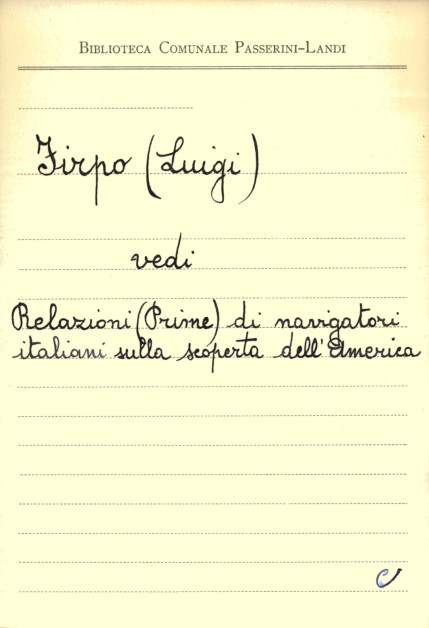 BIBLIOTECA COMUNALE PASSERINI-LANDI
Firpo (Luigi)
vedi
Relazioni (Prime) di navigatori
italiani sulla scoperta dell'America